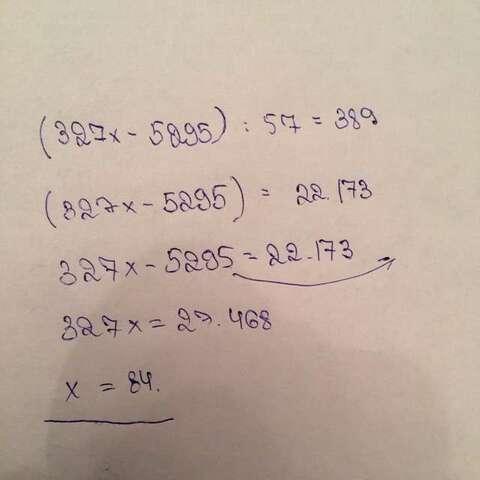 (327x - 5295) : 57 = 389
(327x - 5295) = 22.173
327x - 5295 = 22.173
327x = 27.468
x = 84.